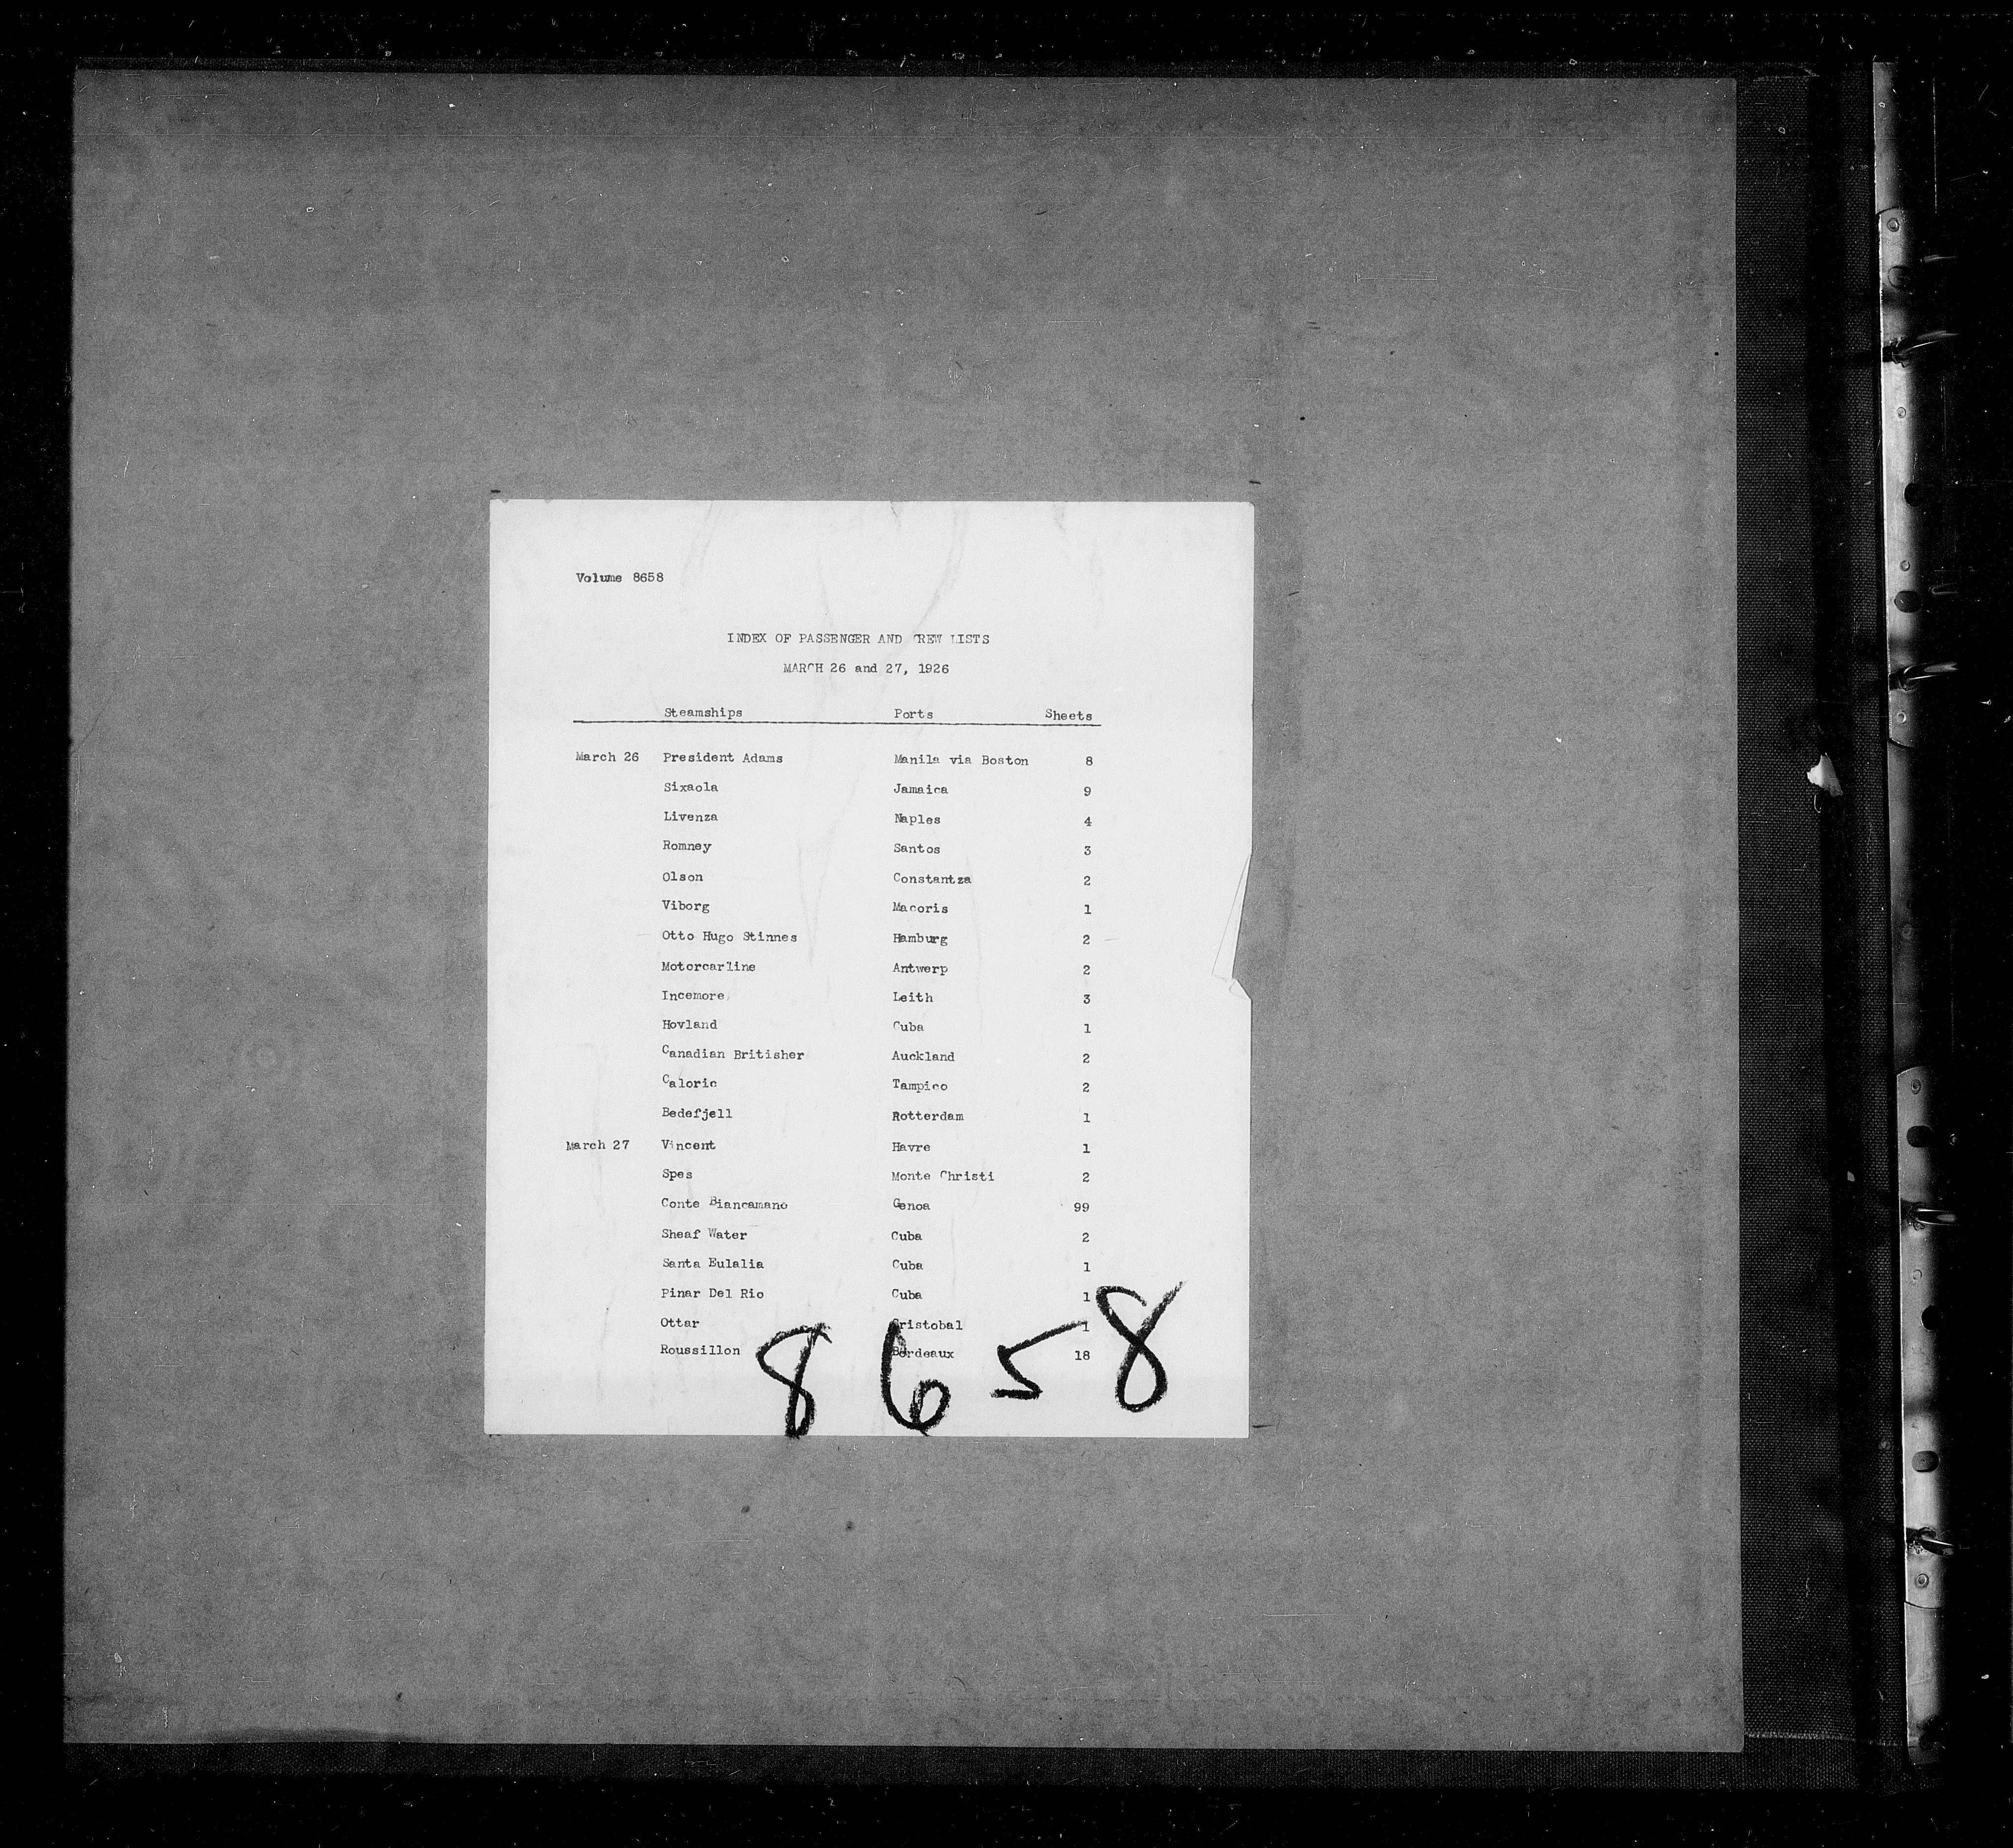 Volume 8658
INDEX OF PASSENGER AND CREW LISTS
MARCH 26 and 27, 1926
Steamships Ports Sheets
March 26 President Adams Manila via Boston 8
Sixaola Jamaica 9
Livenza Naples 4
Romney Santos 3
Olson Constantza 2
Viborg Macoris 1
Otto Hugo Stinnes Hamburg 2
Motorcarline Antwerp 2
Incemore Leith 3
Hovland Cuba 1
Canadian Britisher Auckland 2
Caloric Tampico 2
Bedefjell Rotterdam 1
March 27 Vincent Havre 1
Spes Monte Christi 2
Conte Biancamano Genoa 99
Sheaf Water Cuba 2
Santa Eulalia Cuba 1
Pinar Del Rio Cuba 1
Ottar Cristobal 1
Roussillon Bordeaux 18
8658